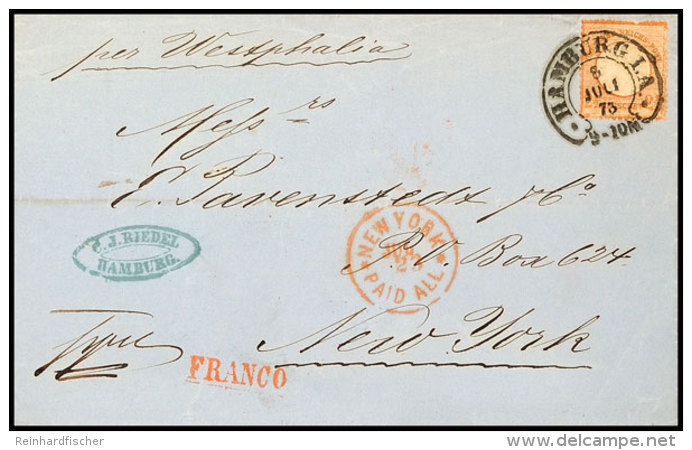 per Westphalia
HAMBURG I.A.
8
JULI
73
9-10N
Messrs
E. Pavenstedt & Co
C. J. RIEDEL
HAMBURG.
NEW YORK
JUL
PAID ALL
P.O. Box 624.
New York
FRANCO
Reinhardfischer
delcampe.net